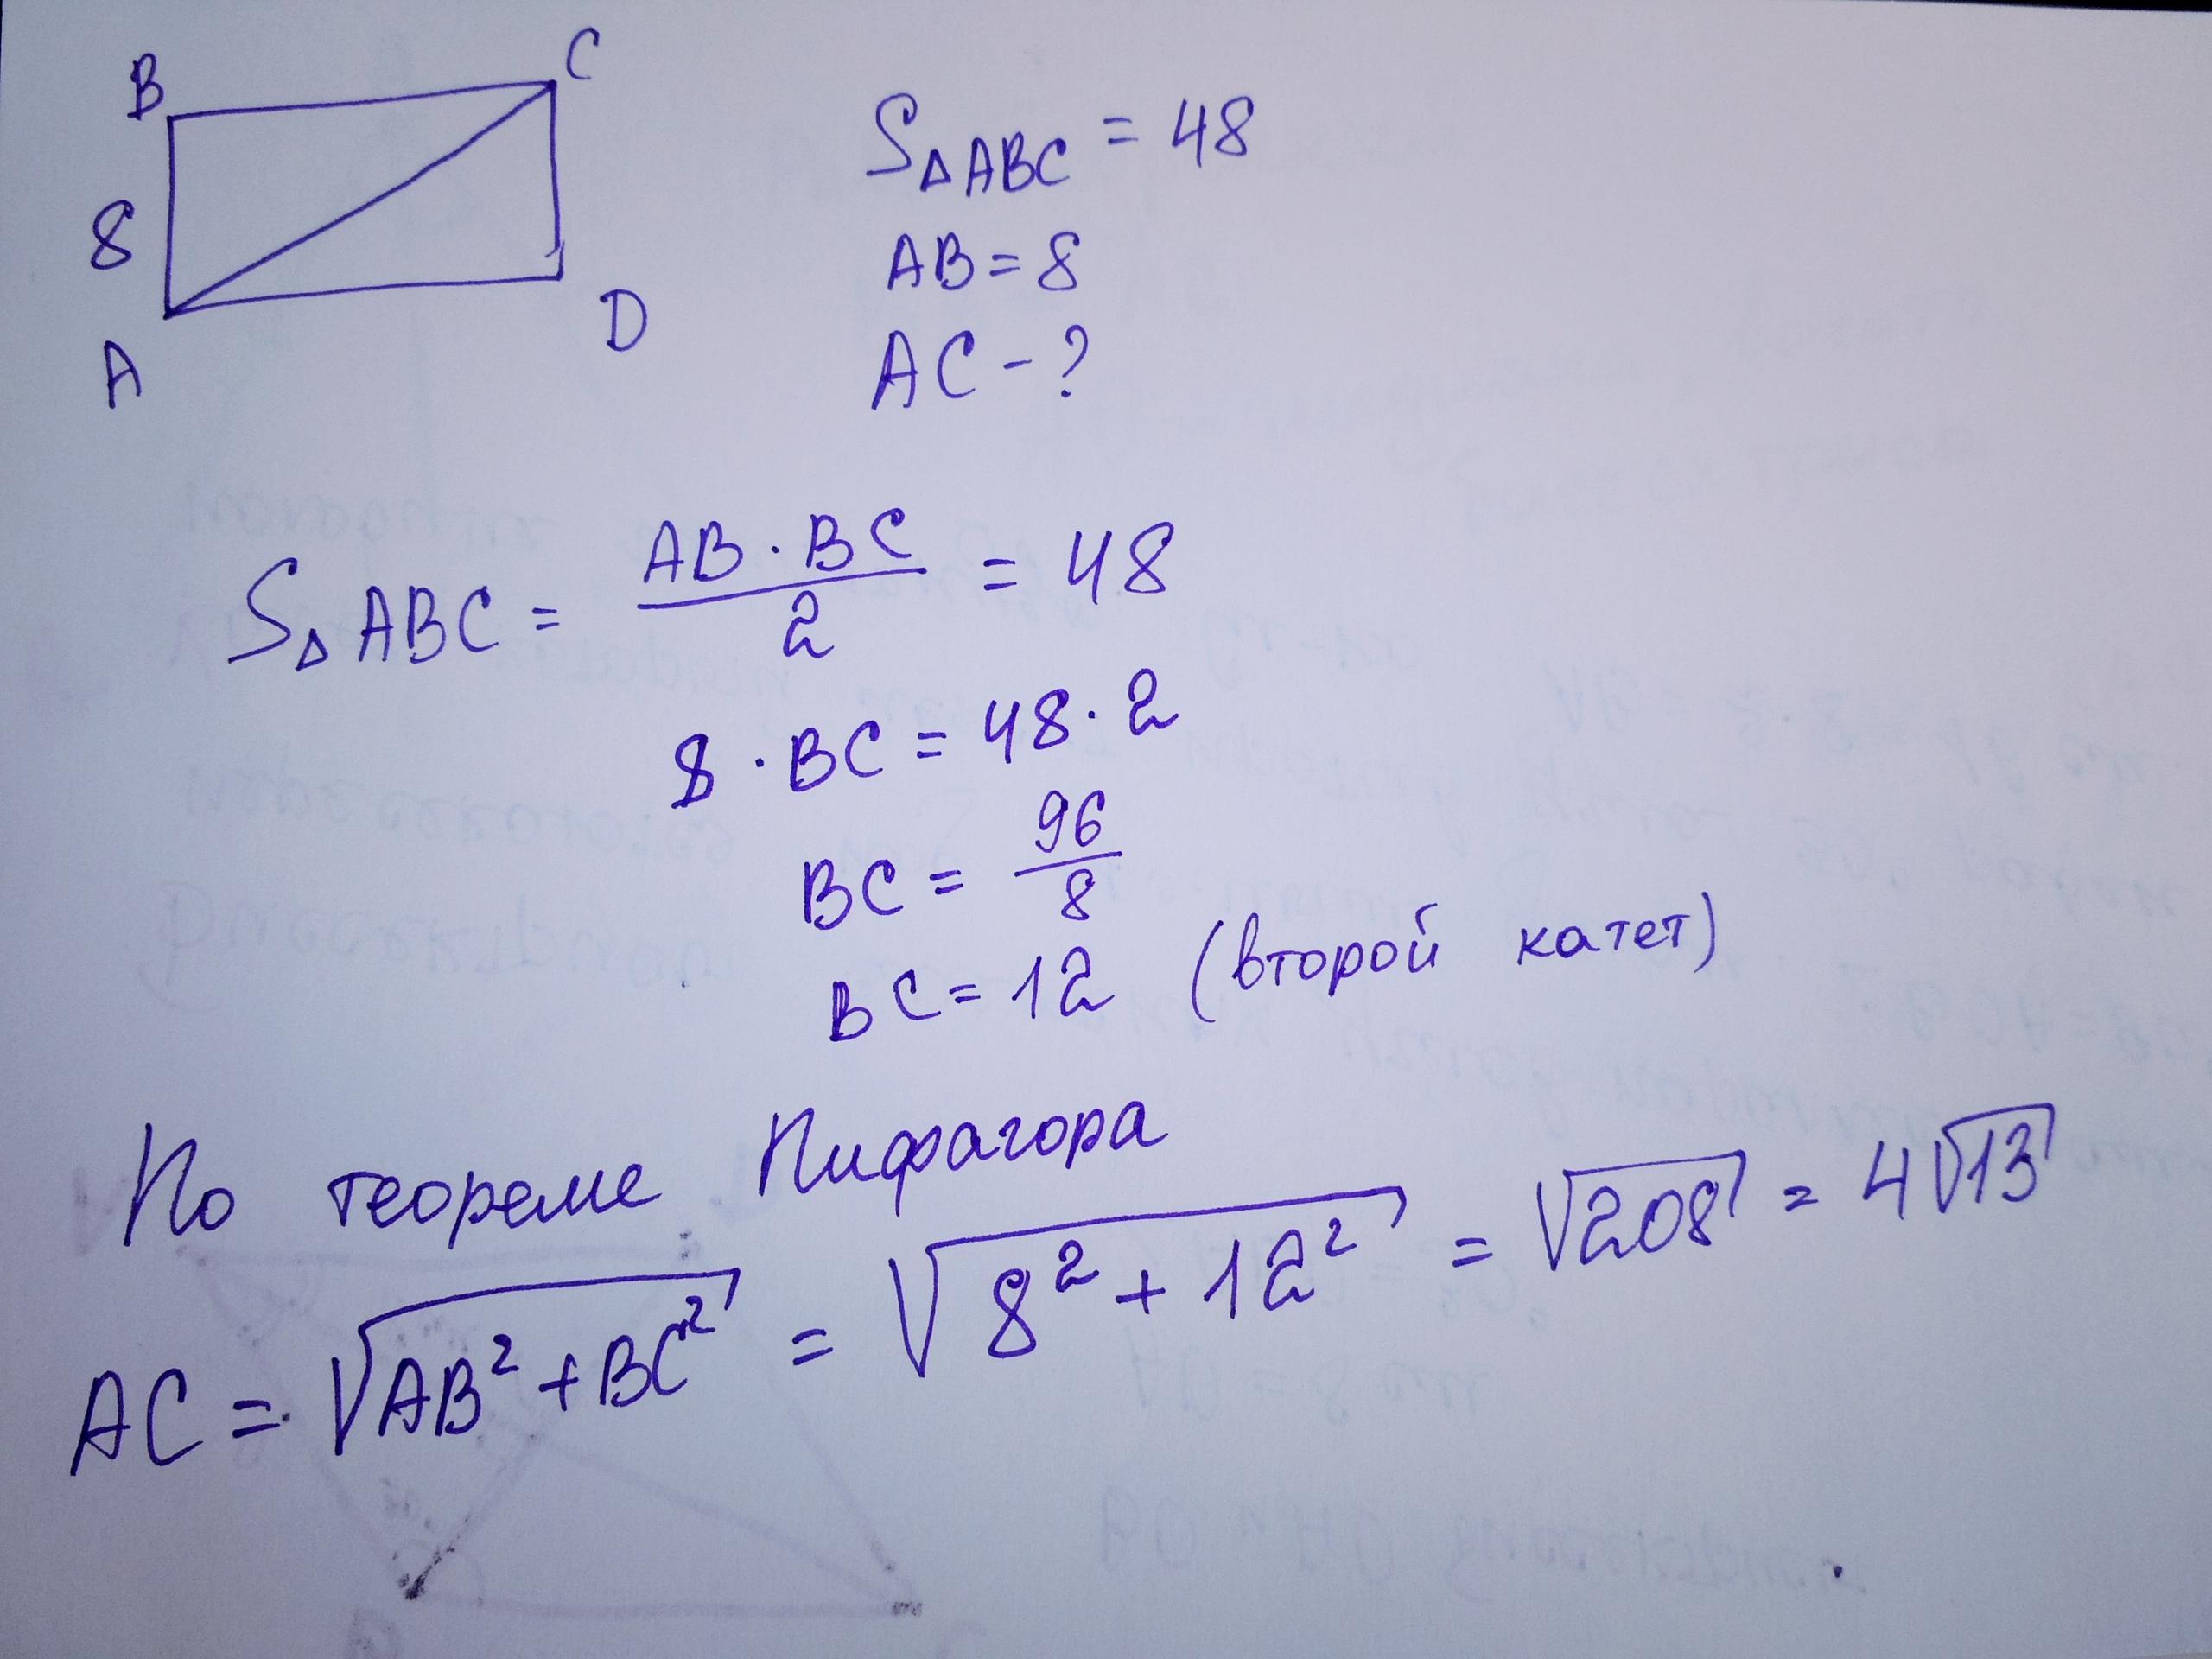 B C
8
A D
S△ABC = 48
AB = 8
AC - ?
S△ABC = AB · BC / 2 = 48
8 · BC = 48 · 2
BC = 96 / 8
BC = 12 (второй катет)
По теореме Пифагора
AC = √(AB² + BC²) = √(8² + 12²) = √208 = 4√13